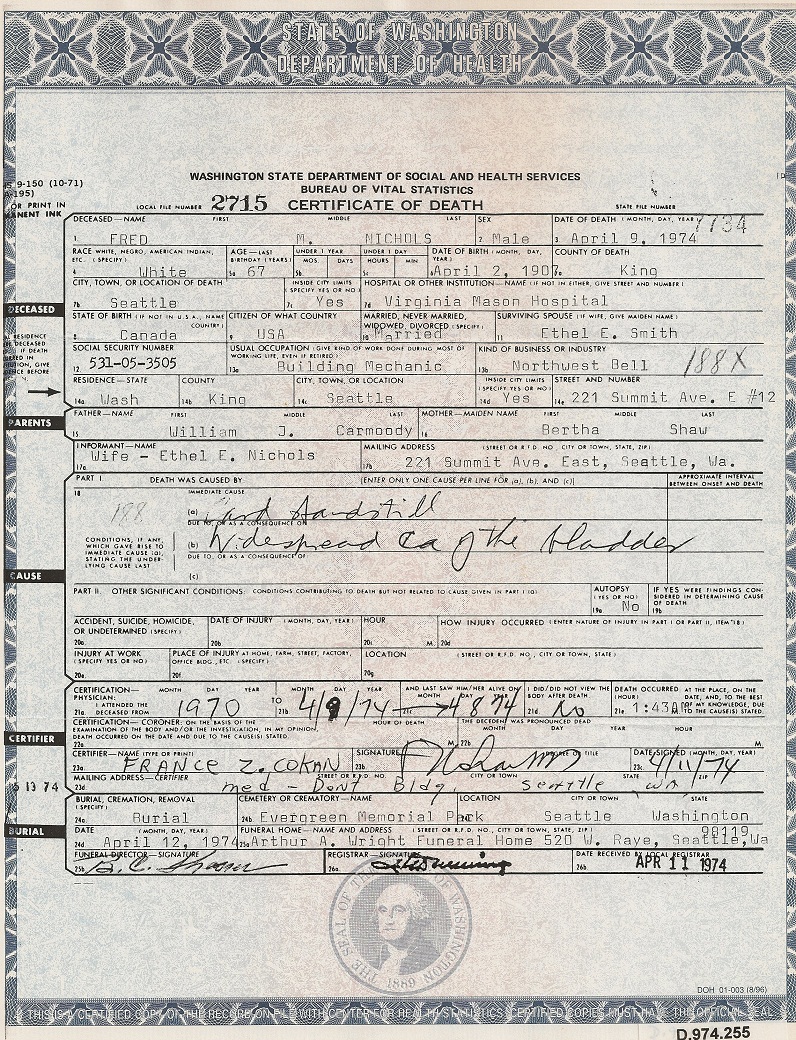 STATE OF WASHINGTON
DEPARTMENT OF HEALTH
WASHINGTON STATE DEPARTMENT OF SOCIAL AND HEALTH SERVICES
BUREAU OF VITAL STATISTICS
9-150 (10-71)
-195)
OR PRINT IN
MANENT INK
LOCAL FILE NUMBER 2715 CERTIFICATE OF DEATH STATE FILE NUMBER
7734
DECEASED—NAME FIRST MIDDLE LAST SEX DATE OF DEATH (MONTH, DAY, YEAR)
1 FRED M. NICHOLS 2 Male 3 April 9, 1974
RACE WHITE, NEGRO, AMERICAN INDIAN, ETC. (SPECIFY) AGE—LAST BIRTHDAY (YEARS) UNDER 1 YEAR MOS. DAYS UNDER 1 DAY HOURS MIN DATE OF BIRTH (MONTH, DAY, YEAR) COUNTY OF DEATH
4 White 5a 67 5b 5c 6 April 2, 1907. King
CITY, TOWN, OR LOCATION OF DEATH INSIDE CITY LIMITS (SPECIFY YES OR NO) HOSPITAL OR OTHER INSTITUTION—NAME (IF NOT IN EITHER, GIVE STREET AND NUMBER)
7b Seattle 7c Yes 7d Virginia Mason Hospital
DECEASED
STATE OF BIRTH (IF NOT IN U.S.A., NAME COUNTRY) CITIZEN OF WHAT COUNTRY MARRIED, NEVER MARRIED, WIDOWED, DIVORCED (SPECIFY) SURVIVING SPOUSE (IF WIFE, GIVE MAIDEN NAME)
8 Canada 9 USA 10 Married 11 Ethel E. Smith
SOCIAL SECURITY NUMBER USUAL OCCUPATION (GIVE KIND OF WORK DONE DURING MOST OF WORKING LIFE, EVEN IF RETIRED) KIND OF BUSINESS OR INDUSTRY
12. 531-05-3505 13a Building Mechanic 13b Northwest Bell 188X
RESIDENCE—STATE COUNTY CITY, TOWN, OR LOCATION INSIDE CITY LIMITS (SPECIFY YES OR NO) STREET AND NUMBER
14a Wash 14b King 14c Seattle 14d Yes 14e 221 Summit Ave. E #12
PARENTS
FATHER—NAME FIRST MIDDLE LAST MOTHER—MAIDEN NAME FIRST MIDDLE LAST
15 William J. Carmoody 16 Bertha Shaw
INFORMANT—NAME MAILING ADDRESS (STREET OR R.F.D. NO., CITY OR TOWN, STATE, ZIP)
17a Wife - Ethel E. Nichols 17b 221 Summit Ave. East, Seattle, Wa.
PART I DEATH WAS CAUSED BY (ENTER ONLY ONE CAUSE PER LINE FOR (a), (b), AND (c)) APPROXIMATE INTERVAL BETWEEN ONSET AND DEATH
18 IMMEDIATE CAUSE
188 (a) Card standstill
DUE TO, OR AS A CONSEQUENCE OF
CONDITIONS, IF ANY, WHICH GAVE RISE TO IMMEDIATE CAUSE (a), STATING THE UNDERLYING CAUSE LAST
(b) Widespread ca of the bladder
DUE TO, OR AS A CONSEQUENCE OF:
CAUSE
(c)
PART II. OTHER SIGNIFICANT CONDITIONS: CONDITIONS CONTRIBUTING TO DEATH BUT NOT RELATED TO CAUSE GIVEN IN PART I (a) AUTOPSY (YES OR NO) IF YES WERE FINDINGS CONSIDERED IN DETERMINING CAUSE OF DEATH
19a No 19b
ACCIDENT, SUICIDE, HOMICIDE, OR UNDETERMINED (SPECIFY) DATE OF INJURY (MONTH, DAY, YEAR) HOUR HOW INJURY OCCURRED (ENTER NATURE OF INJURY IN PART I OR PART II, ITEM 18)
20a 20b 20c M. 20d
INJURY AT WORK (SPECIFY YES OR NO) PLACE OF INJURY AT HOME, FARM, STREET, FACTORY, OFFICE BLDG., ETC. (SPECIFY) LOCATION (STREET OR R.F.D. NO., CITY OR TOWN, STATE)
20e 20f 20g
CERTIFICATION—PHYSICIAN: MONTH DAY YEAR MONTH DAY YEAR AND LAST SAW HIM/HER ALIVE ON MONTH DAY YEAR I DID/DID NOT VIEW THE BODY AFTER DEATH DEATH OCCURRED (HOUR) AT THE PLACE, ON THE DATE, AND, TO THE BEST OF MY KNOWLEDGE, DUE TO THE CAUSE(S) STATED.
21a I ATTENDED THE DECEASED FROM 1970 TO 21b 4/9/74 21c 4 8 74 21d No 21e 1:43A
CERTIFICATION—CORONER: ON THE BASIS OF THE EXAMINATION OF THE BODY AND/OR THE INVESTIGATION, IN MY OPINION, DEATH OCCURRED ON THE DATE AND DUE TO THE CAUSE(S) STATED. HOUR OF DEATH THE DECEDENT WAS PRONOUNCED DEAD MONTH DAY YEAR HOUR
22a M. 22b M.
CERTIFIER
CERTIFIER—NAME (TYPE OR PRINT) SIGNATURE DEGREE OR TITLE DATE SIGNED (MONTH, DAY, YEAR)
23a FRANCE Z. COKAN 23b 23c 4/11/74
MAILING ADDRESS—CERTIFIER STREET OR R.F.D. NO. CITY OR TOWN STATE ZIP
13 74
23d Med - Dent Bldg. Seattle WA
BURIAL, CREMATION, REMOVAL (SPECIFY) CEMETERY OR CREMATORY—NAME LOCATION CITY OR TOWN STATE
24a Burial 24b Evergreen Memorial Park Seattle Washington
BURIAL
98119
DATE (MONTH, DAY, YEAR) FUNERAL HOME—NAME AND ADDRESS (STREET OR R.F.D. NO., CITY OR TOWN, STATE, ZIP)
24d April 12, 1974 25a Arthur A. Wright Funeral Home 520 W. Raye, Seattle, Wa
FUNERAL DIRECTOR—SIGNATURE REGISTRAR—SIGNATURE DATE RECEIVED BY LOCAL REGISTRAR
25b 26a 26b APR 11 1974
THE SEAL OF THE STATE OF WASHINGTON
1889
DOH 01-003 (8/96)
THIS IS A CERTIFIED COPY OF THE RECORD ON FILE WITH CENTER FOR HEALTH STATISTICS. CERTIFIED COPIES MUST HAVE THIS OFFICIAL SEAL
D.974.255